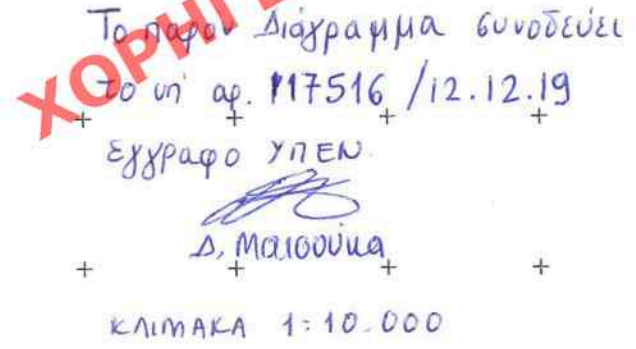 Το παρον Διάγραμμα συνοδεύει
το υπ' αρ. 117516 /12.12.19
έγγραφο ΥΠΕΝ.
Δ, Ματσούκα
ΚΛΙΜΑΚΑ 1:10.000